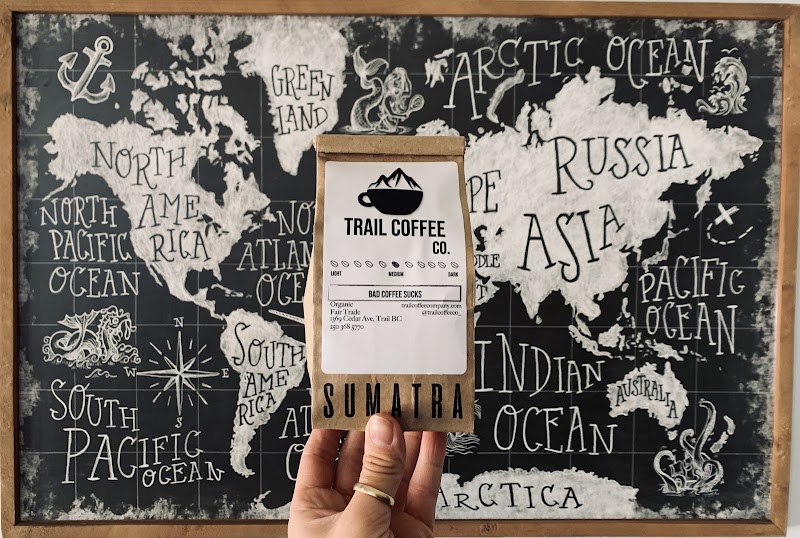 ARCTIC OCEAN
GREEN
LAND
NORTH
AME
RICA
RUSSIA
ASIA
NORTH
PACIFIC
OCEAN
PACIFIC
OCEAN
TRAIL COFFEE
CO.
LIGHT MEDIUM DARK
BAD COFFEE SUCKS
Organic trailcoffeecompany.com
Fair Trade @trailcoffeeco_
1369 Cedar Ave, Trail BC
250 368 5770
SUMATRA
N
W
S
SOUTH
AME
RICA
SOUTH
PACIFIC
OCEAN
INDIAN
OCEAN
AUSTRALIA